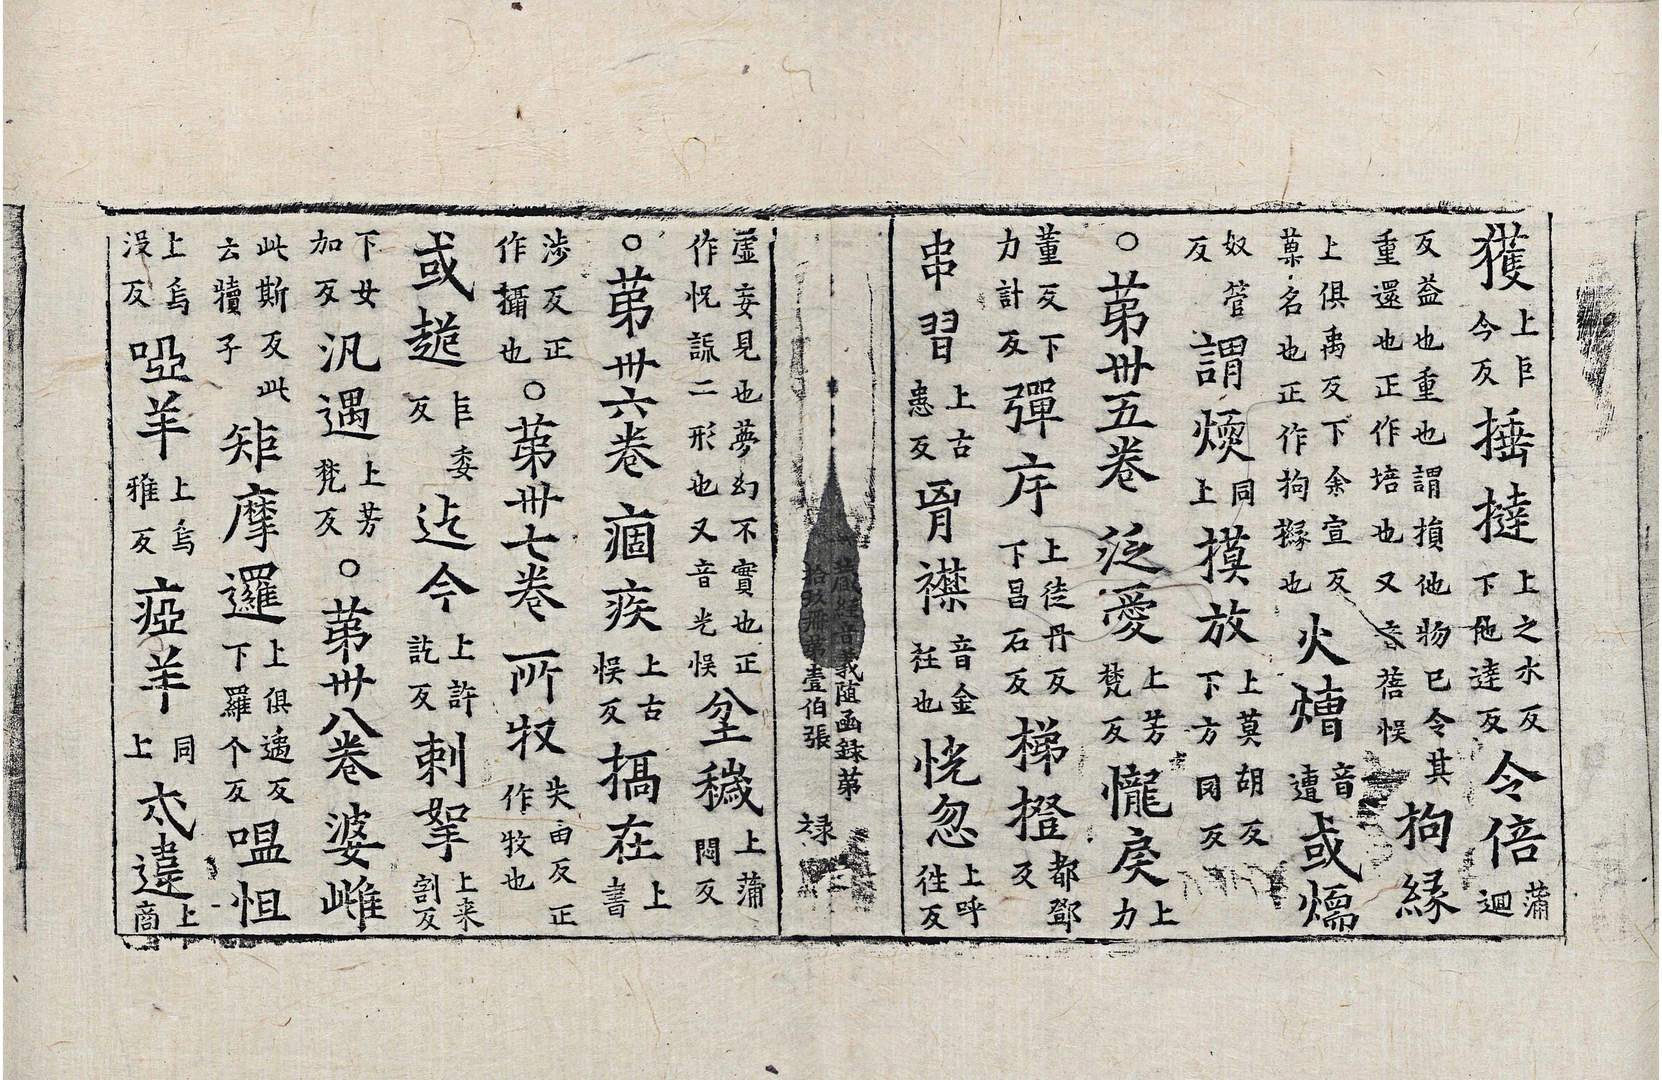 獲上巨今反捶撻上之水反下他達反令倍蒲迴
反益也重也謂損他物已令其重還也正作培也又音蓓悮拘緣
上俱禹反下余宣反菓名也正作拘櫞也火㷮音遭或燸
奴管反謂煗同上摸放上莫胡反下方罔反
○苐卅五卷泛愛上芳梵反㦕戾上力
董反下力計反彈斥上徒丹反下昌石反梯橙都鄧反
串習上古患反胷襟音金衽也恍忽上呼往反
藏經音義随函録苐拾玖冊第壹伯張 禄
虛妄見也夢幻不實也正作怳䛄二形也又音光悮坌穢上蒲悶反
○苐卅六卷痼疾上古悮反搞在上書
涉反正作攝也○苐卅七卷所牧失由反正作牧也
或䞨巨委反迄今上許訖反刺拏上来割反
下女加反汎遇上芳梵反○苐卅八卷婆雌
此斯反此云犢子矩摩邏上俱遇反下羅个反嗢怛
上烏没反啞羊上烏雅反瘂羊同上忒違上商